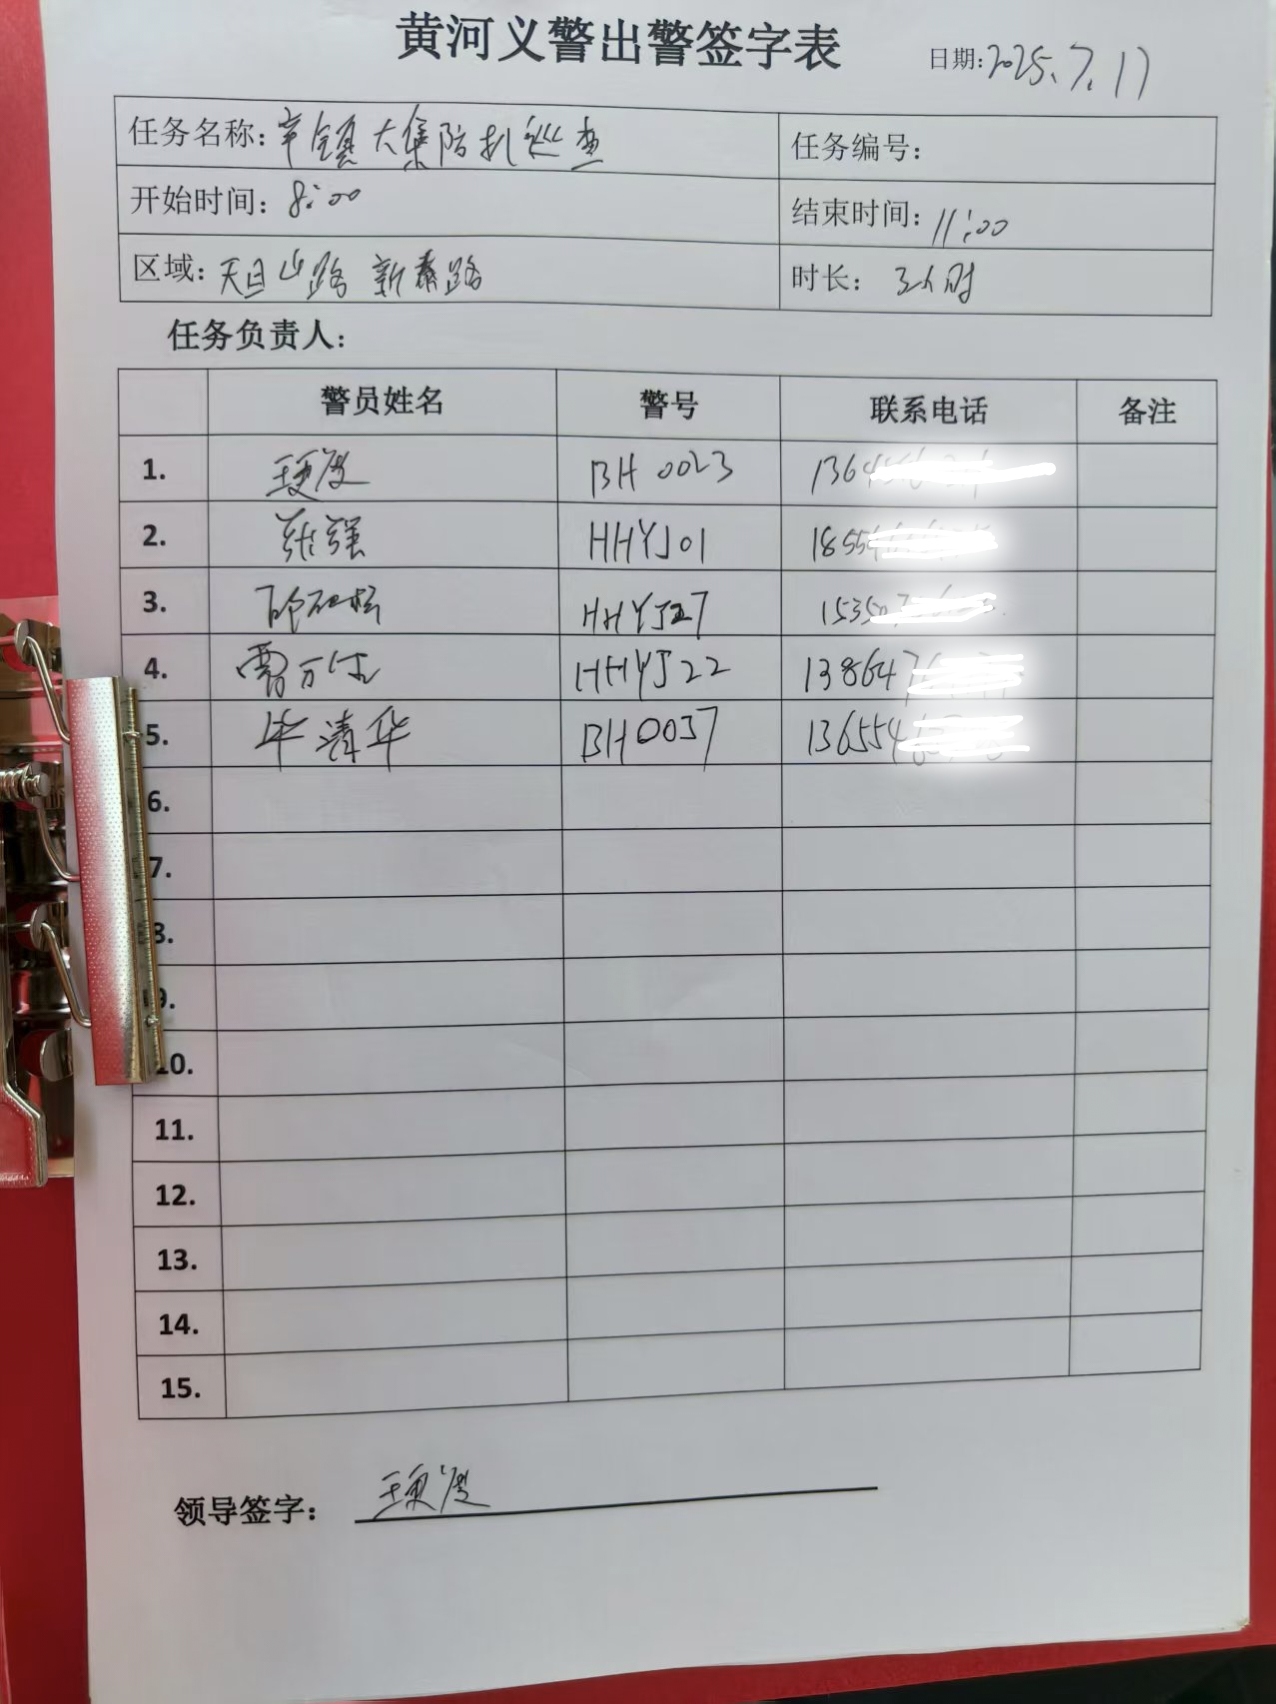 黄河义警出警签字表
日期:2025.7.17
任务名称: 辛镇大集防扒巡查 任务编号:
开始时间: 8:00 结束时间: 11:00
区域: 天目山路 新泰路 时长: 3小时
任务负责人:
警员姓名 警号 联系电话 备注
1. BH 0023 1364
2. 张强 HHYJ01 1855
3. HHYJ27 1535
4. 曹万 HHYJ22 138647
5. 毕清华 BH0037 136554
6.
7.
8.
9.
10.
11.
12.
13.
14.
15.
领导签字: